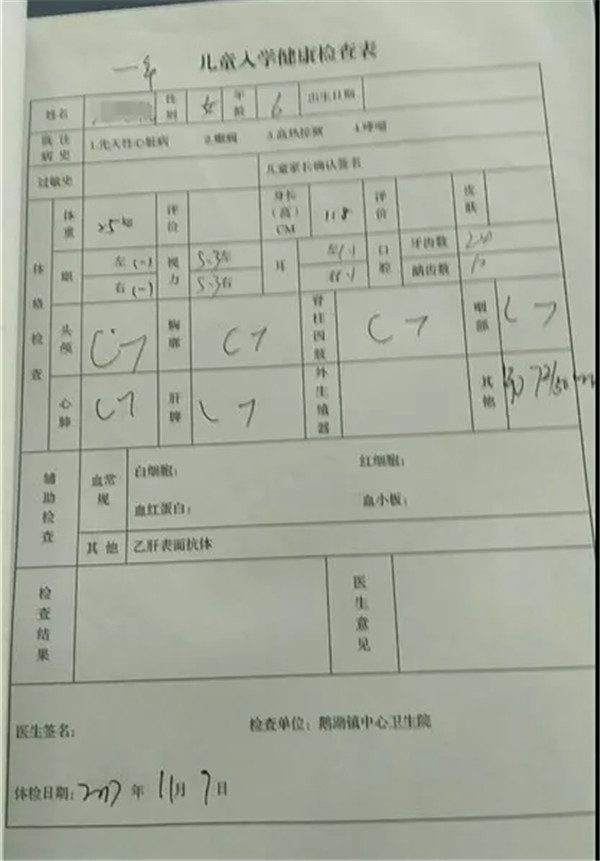 一年 儿童入学健康检查表
姓名 性别 女 年龄 6 出生日期
既往病史 1.先天性心脏病 2.癫痫 3.高热惊厥 4.哮喘
过敏史 儿童家长确认签名
体格检查 体重 25kg 评价 身长(高)CM 118 评价 皮肤
眼 左(-) 视力 5.3左 耳 左(-) 口腔 牙齿数 24
右(-) 5.3右 右(-) 龋齿数
头颅 (-) 胸廓 (-) 脊柱四肢 (-) 咽部 (-)
心肺 (-) 肝脾 (-) 外生殖器 其他
辅助检查 血常规 白细胞: 红细胞:
血红蛋白: 血小板:
其他 乙肝表面抗体
检查结果 医生意见
医生签名: 检查单位:鹅湖镇中心卫生院
体检日期:2017年11月7日